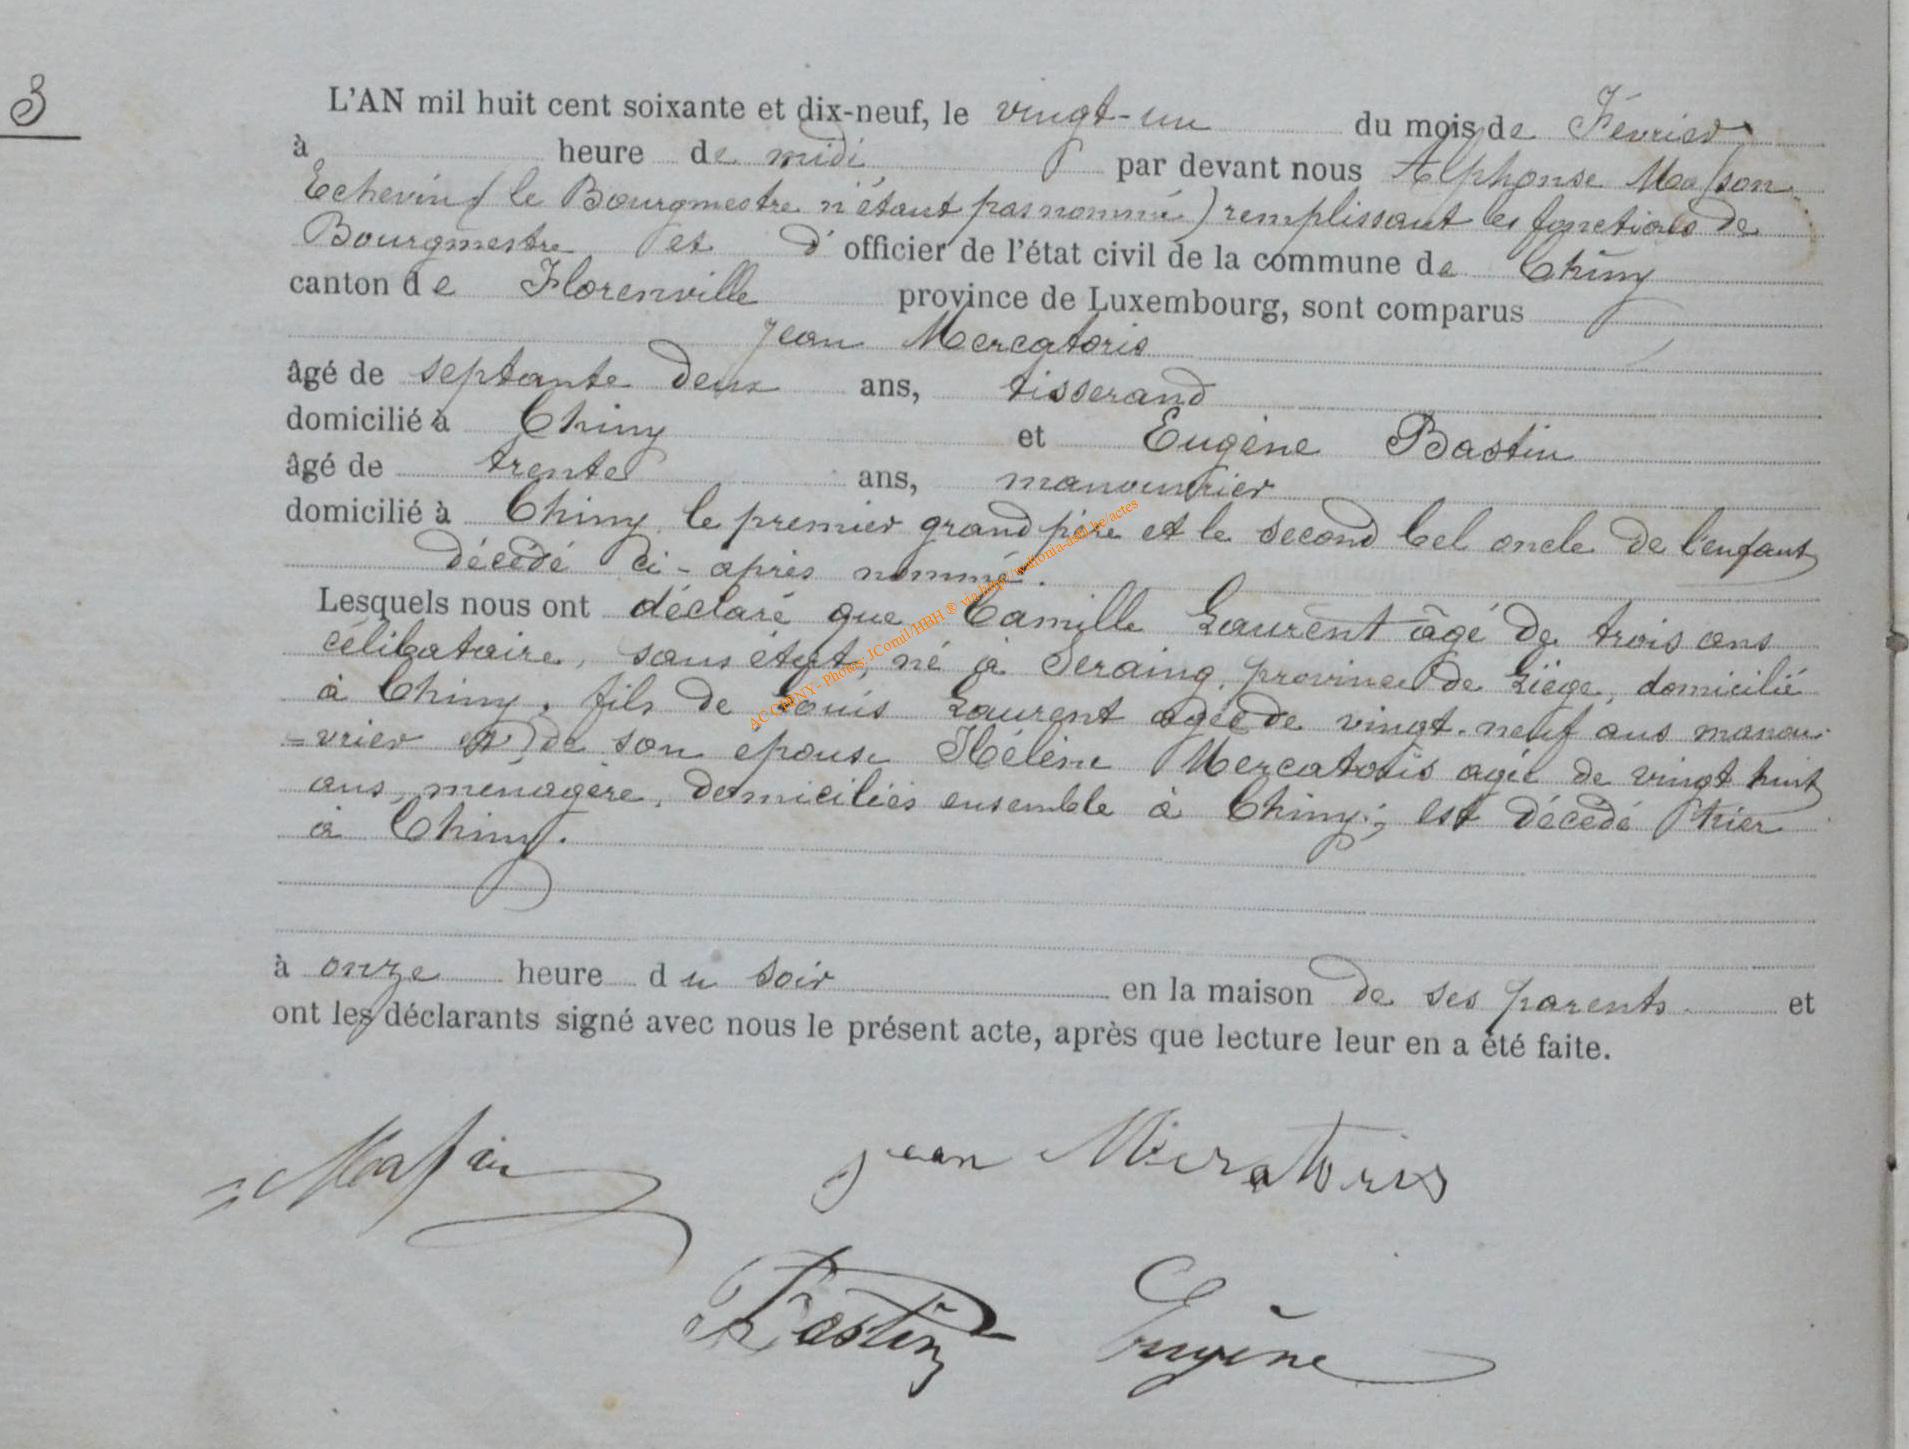 3
L'AN mil huit cent soixante et dix-neuf, le vingt-un du mois de Février
à heure de midi par devant nous Alphonse Masson
Echevin (le Bourgmestre n'étant pas nommé) remplissant les fonctions de
Bourgmestre et d'officier de l'état civil de la commune de Chiny
canton de Florenville province de Luxembourg, sont comparus
Jean Mercatoris
âgé de septante deux ans, tisserand
domicilié à Chiny et Eugène Bastin
âgé de trente ans, manouvrier
domicilié à Chiny, le premier grand père et le second bel oncle de l'enfant
décédé ci-après nommé.
Lesquels nous ont déclaré que Camille Laurent âgé de trois ans
célibataire, sans état, né à Seraing, province de Liège, domicilié
à Chiny, fils de Louis Laurent agée de vingt-neuf ans manou-
=vrier et de son épouse Hélène Mercatoris agée de vingt huit
ans, menagère, domiciliés ensemble à Chiny; est décédé hier
à Chiny.
à onze heure du soir en la maison de ses parents et
ont les déclarants signé avec nous le présent acte, après que lecture leur en a été faite.
Masson jean Mercatoris
Bastin Eugène
ACCHINY- Photos JComil/HBH ® via http://wallonia-asbl.be/actes